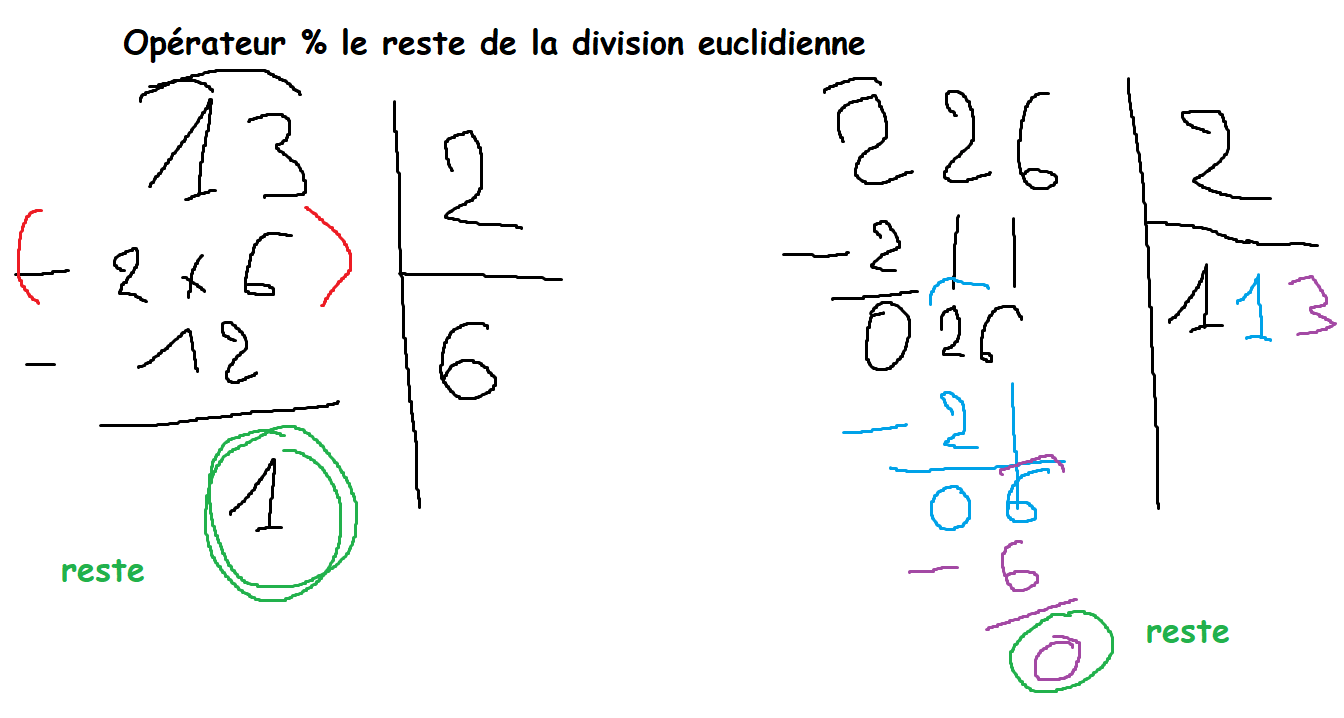 Opérateur % le reste de la division euclidienne
13 2
- 2 x 6
6
- 12
1
reste
226 2
- 2
113
026
- 2
06
- 6
0
reste